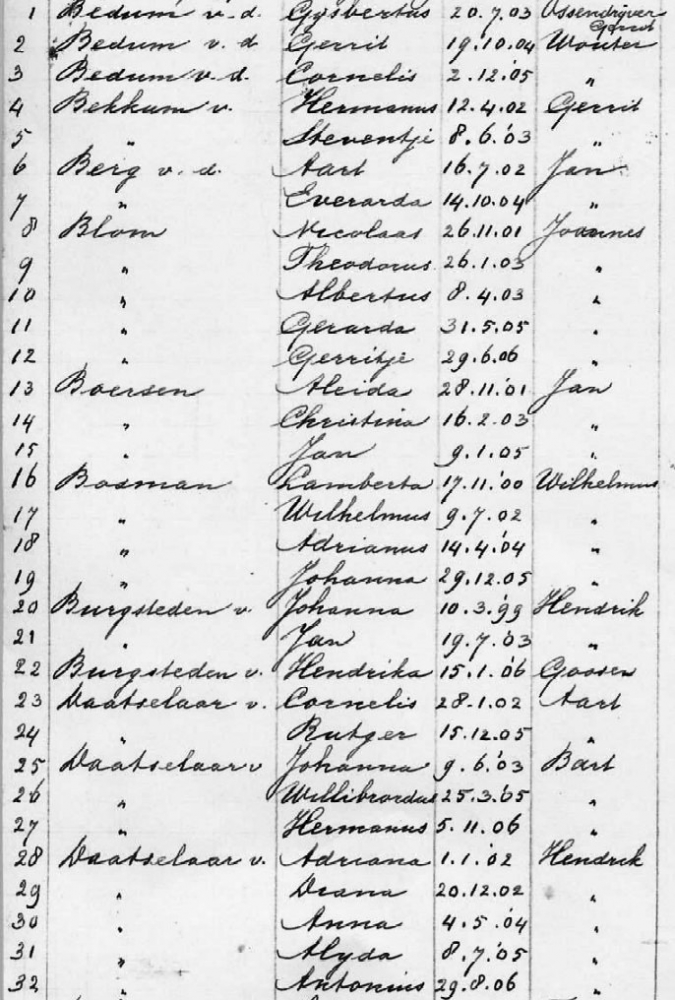 1 Bedum v. d. Gijsbertus 20.7.03 Ossendrijver Gerrit
2 Bedum v. d. Gerrit 19.10.04 Wouter
3 Bedum v. d. Cornelis 2.12.05 "
4 Bekkum v. Hermanus 12.4.02 Gerrit
5 " Steventje 8.6.03 "
6 Berg v. d. Aart 16.7.02 Jan
7 " Everarda 14.10.04 "
8 Blom Nicolaas 26.11.01 Joannes
9 " Theodorus 26.1.03 "
10 " Albertus 8.4.03 "
11 " Gerarda 31.5.05 "
12 " Gerritje 29.6.06 "
13 Boersen Aleida 28.11.01 Jan
14 " Christina 16.2.03 "
15 " Jan 9.1.05 "
16 Bosman Lamberta 17.11.'00 Wilhelmus
17 " Wilhelmus 9.7.02 "
18 " Adrianus 14.4.'04 "
19 " Johanna 29.12.05 "
20 Burgsteden v. Johanna 10.3.'99 Hendrik
21 " Jan 19.7.'03 "
22 Burgsteden v. Hendrika 15.1.'06 Goosen
23 Daatselaar v. Cornelis 28.1.02 Aart
24 " Rutger 15.12.05 "
25 Daatselaar v Johanna 9.6.'03 Bart
26 " Willibrordus 25.3.'05 "
27 " Hermanus 5.11.06 "
28 Daatselaar v. Adriana 1.1.'02 Hendrik
29 " Diana 20.12.02 "
30 " Anna 4.5.'04 "
31 " Alyda 8.7.'05 "
32 " Antonius 29.8.06 "